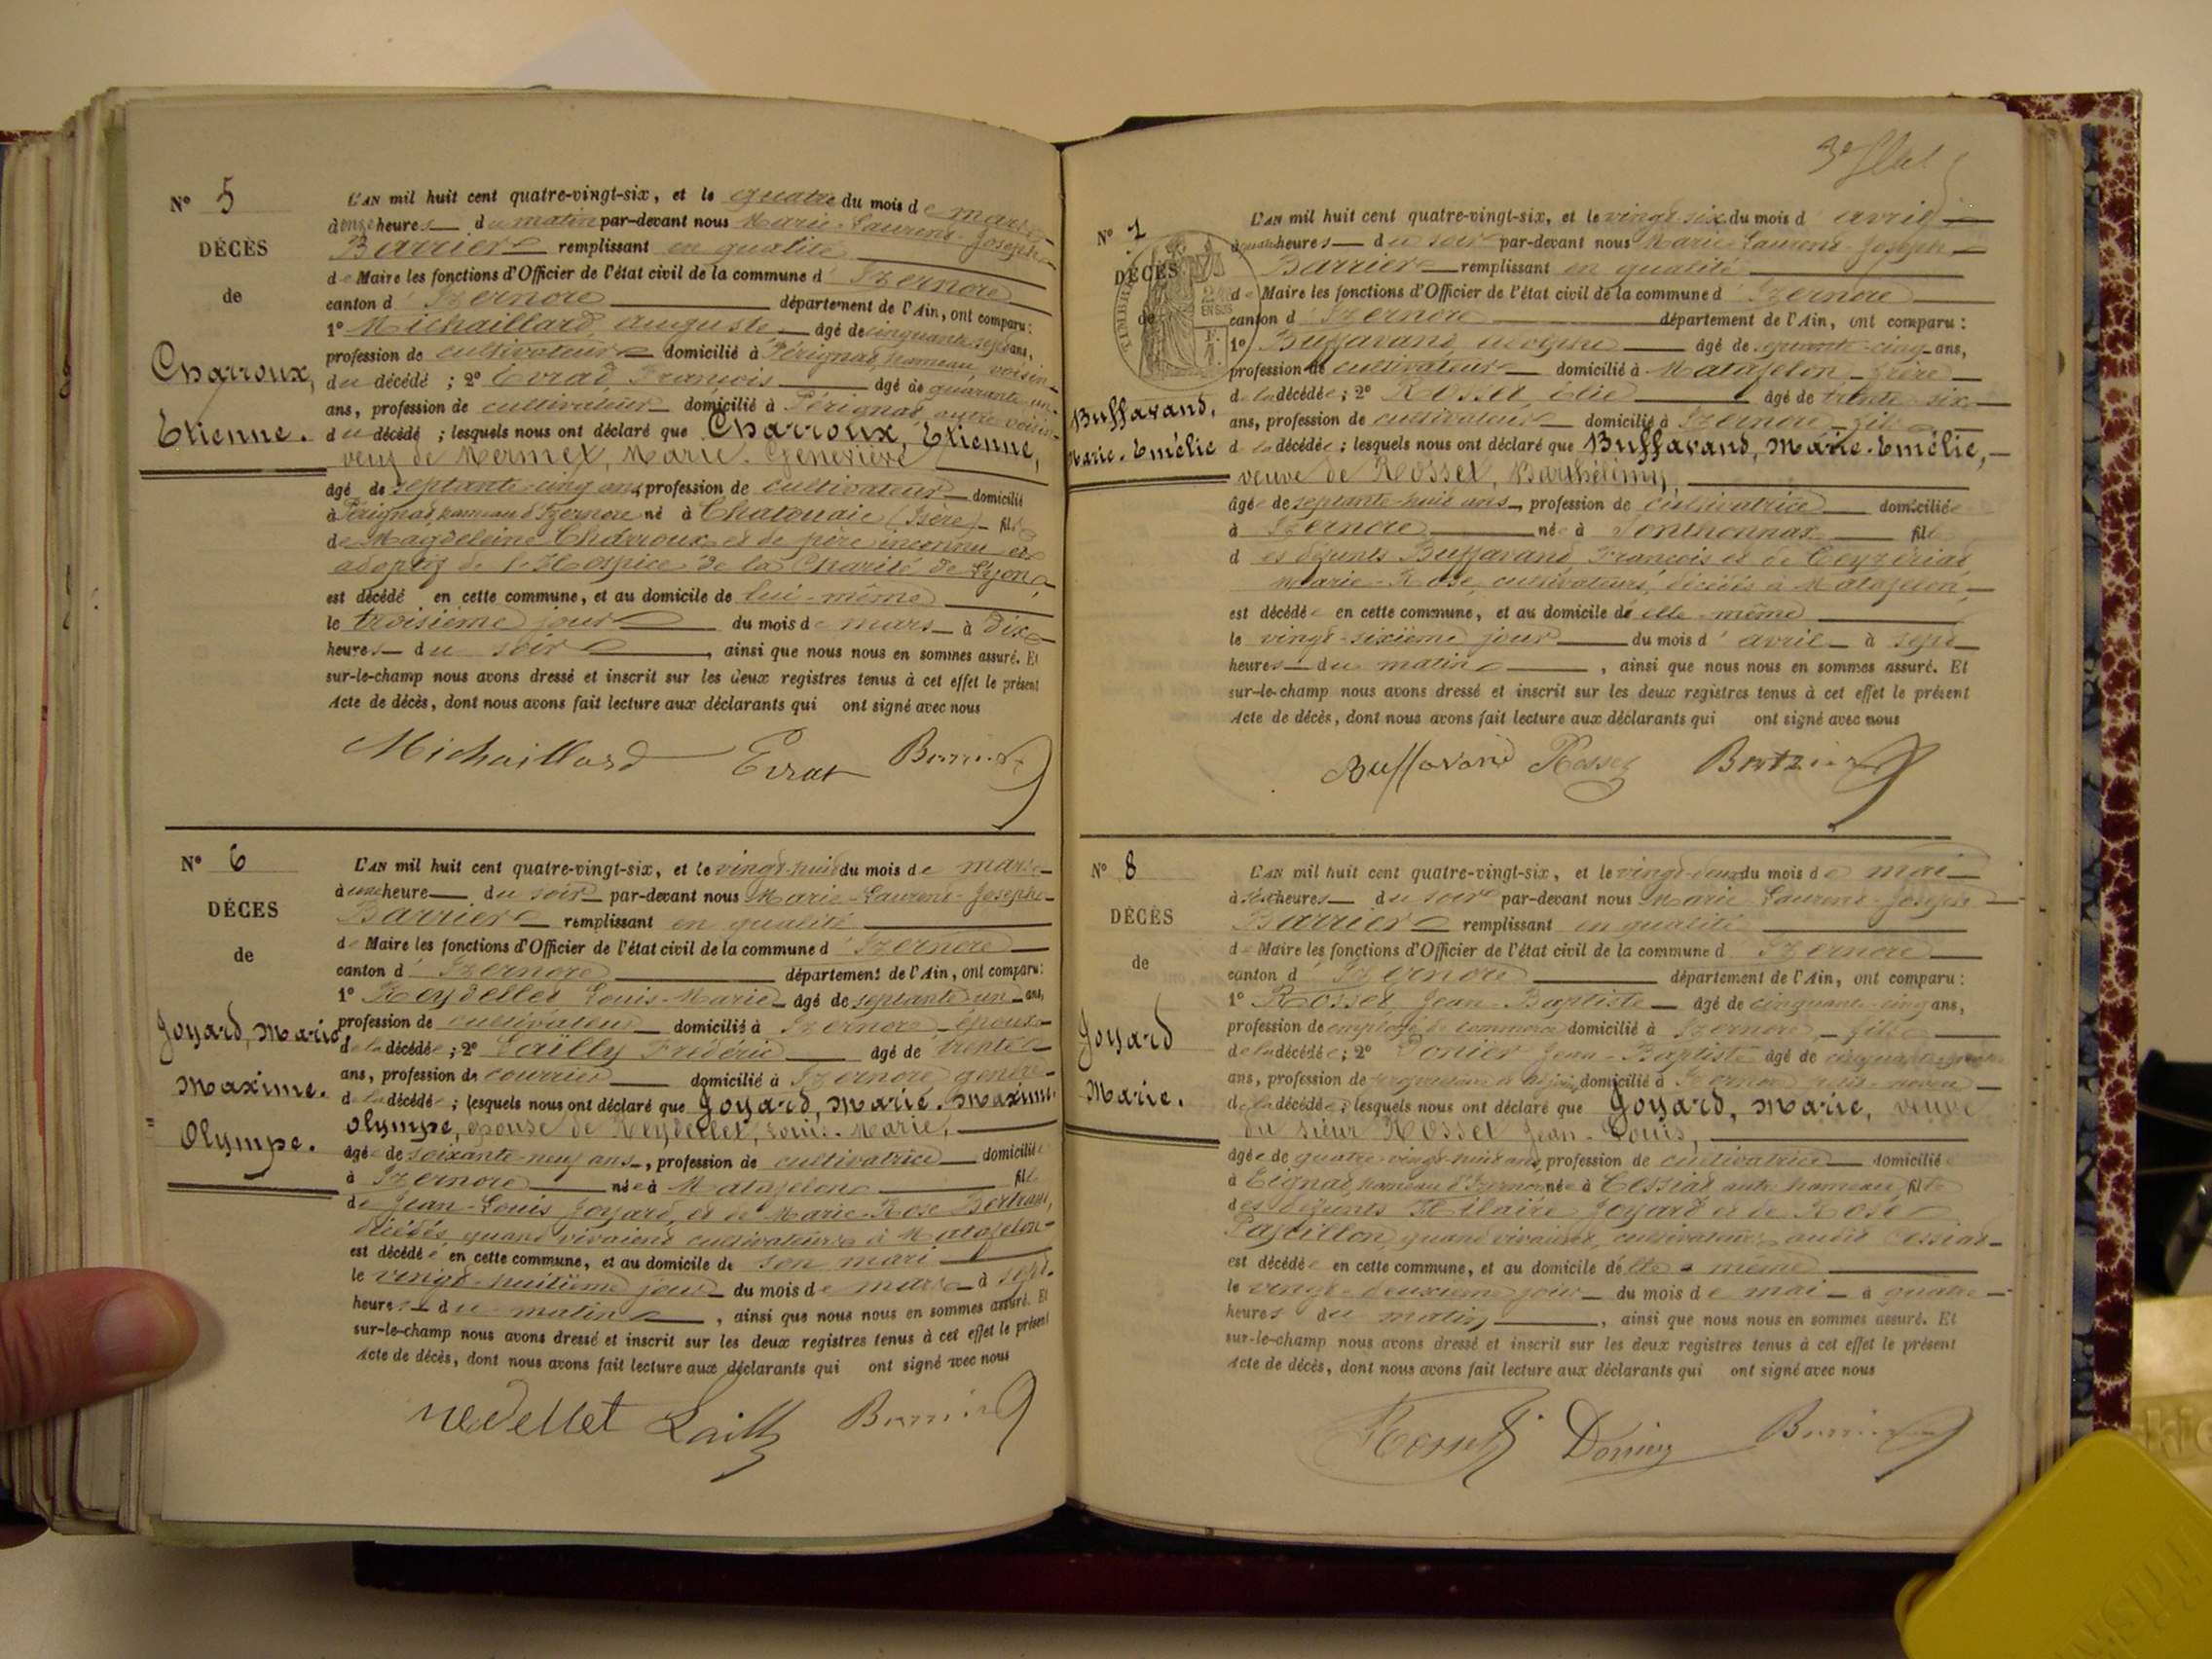 N° 5
DÉCÈS
de
Charroux,
Etienne.
L'AN mil huit cent quatre-vingt-six, et le quatre du mois de mars
à onze heures du matin par-devant nous Marie-Laurent-Joseph
Barrier remplissant en qualité
de Maire les fonctions d'Officier de l'état civil de la commune d'Izernore
canton d'Izernore département de l'Ain, ont comparu :
1° Michaillard Auguste âgé de cinquante sept ans,
profession de cultivateur domicilié à Pérignat, hameau, voisin
du décédé ; 2° Evrad, François âgé de quarante un
ans, profession de cultivateur domicilié à Pérignat, autre voisin
du décédé ; lesquels nous ont déclaré que Charroux, Etienne,
veuf de Mermet, Marie-Geneviève
âgé de septante-cinq ans, profession de cultivateur domicilié
à Pérignat, hameau d'Izernore né à (Isère) fils
de Magdeleine Charroux et de père inconnu et
adoptif de l'Hospice de la Charité de Lyon,
est décédé en cette commune, et au domicile de lui-même
le troisième jour du mois de mars à dix
heures du soir, ainsi que nous nous en sommes assuré. Et
sur-le-champ nous avons dressé et inscrit sur les deux registres tenus à cet effet le présent
Acte de décès, dont nous avons fait lecture aux déclarants qui ont signé avec nous
Michaillard Evrat Barrier
N° 6
DÉCÈS
de
Joyard, Marie
Maxime.
Olympe.
L'AN mil huit cent quatre-vingt-six, et le vingt-huit du mois de mars
à une heure du soir par-devant nous Marie-Laurent-Joseph
Barrier remplissant en qualité
de Maire les fonctions d'Officier de l'état civil de la commune d'Izernore
canton d'Izernore département de l'Ain, ont comparu :
1° Reydellet Louis-Marie âgé de septante un ans,
profession de cultivateur domicilié à Izernore époux
de la décédée ; 2° Laïlly Frédéric âgé de trente
ans, profession de courrier domicilié à Izernore gendre
de la décédée ; lesquels nous ont déclaré que Joyard, Marie-Maxime
Olympe, épouse de Reydellet, Louis-Marie,
âgée de soixante-neuf ans, profession de cultivatrice domiciliée
à Izernore née à Matafelon fille
de Jean-Louis Joyard, et de Marie-Rose Bertrand,
décédés quand vivaient cultivateurs à Matafelon
est décédée en cette commune, et au domicile de son mari
le vingt-huitième jour du mois de mars à sept
heures du matin, ainsi que nous nous en sommes assuré. Et
sur-le-champ nous avons dressé et inscrit sur les deux registres tenus à cet effet le présent
Acte de décès, dont nous avons fait lecture aux déclarants qui ont signé avec nous
Laill Barrier
N° 7
DÉCÈS
de
Buffavand,
Marie-Emélie
L'AN mil huit cent quatre-vingt-six, et le vingt six du mois d'avril
à quatre heures du soir par-devant nous Marie-Laurent-Joseph
Barrier remplissant en qualité
de Maire les fonctions d'Officier de l'état civil de la commune d'Izernore
canton d'Izernore département de l'Ain, ont comparu :
1° Buffavand âgé de cinq ans,
profession de cultivateur domicilié à Matafelon frère
de la décédée ; 2° Rosset, élie âgé de trente-six
ans, profession de cultivateur domicilié à Izernore fils
de la décédée ; lesquels nous ont déclaré que Buffavand, Marie-Emélie,
veuve de Rosset, Barthélemy,
âgée de septante-huit ans, profession de cultivatrice domiciliée
à Izernore née à Sonthonnax fille
des défunts Buffavand François et de Ceyzériat
Marie-Rose, cultivateurs, décédés à Matafelon,
est décédée en cette commune, et au domicile de elle-même
le vingt-sixième jour du mois d'avril à sept
heures du matin, ainsi que nous nous en sommes assuré. Et
sur-le-champ nous avons dressé et inscrit sur les deux registres tenus à cet effet le présent
Acte de décès, dont nous avons fait lecture aux déclarants qui ont signé avec nous
Buffavand Rosset Barrier
N° 8
DÉCÈS
de
Joyard
Marie.
L'AN mil huit cent quatre-vingt-six, et le vingt-deux du mois de mai
à six heures du soir par-devant nous Marie-Laurent-Joseph
Barrier remplissant en qualité
de Maire les fonctions d'Officier de l'état civil de la commune d'Izernore
canton d'Izernore département de l'Ain, ont comparu :
1° Rosset, Jean-Baptiste âgé de cinquante-cinq ans,
profession de employé de commerce domicilié à Izernore, fils
de la décédée ; 2° Donier Jean-Baptiste âgé de
ans, profession de domicilié à Izernore petit-neveu
de la décédée ; lesquels nous ont déclaré que Joyard, Marie, veuve
du sieur Rosset Jean-Louis,
âgée de quatre-vingt-huit ans, profession de cultivatrice domiciliée
à Tignat, hameau d'Izernore née à Cessiat autre hameau, fille
des défunts Hilaire Joyard et de Rose
quand vivaient, cultivateurs audit Cessiat
est décédée en cette commune, et au domicile de elle-même
le vingt-deuxième jour du mois de mai à quatre
heures du matin, ainsi que nous nous en sommes assuré. Et
sur-le-champ nous avons dressé et inscrit sur les deux registres tenus à cet effet le présent
Acte de décès, dont nous avons fait lecture aux déclarants qui ont signé avec nous
Rosset Donier Barrier